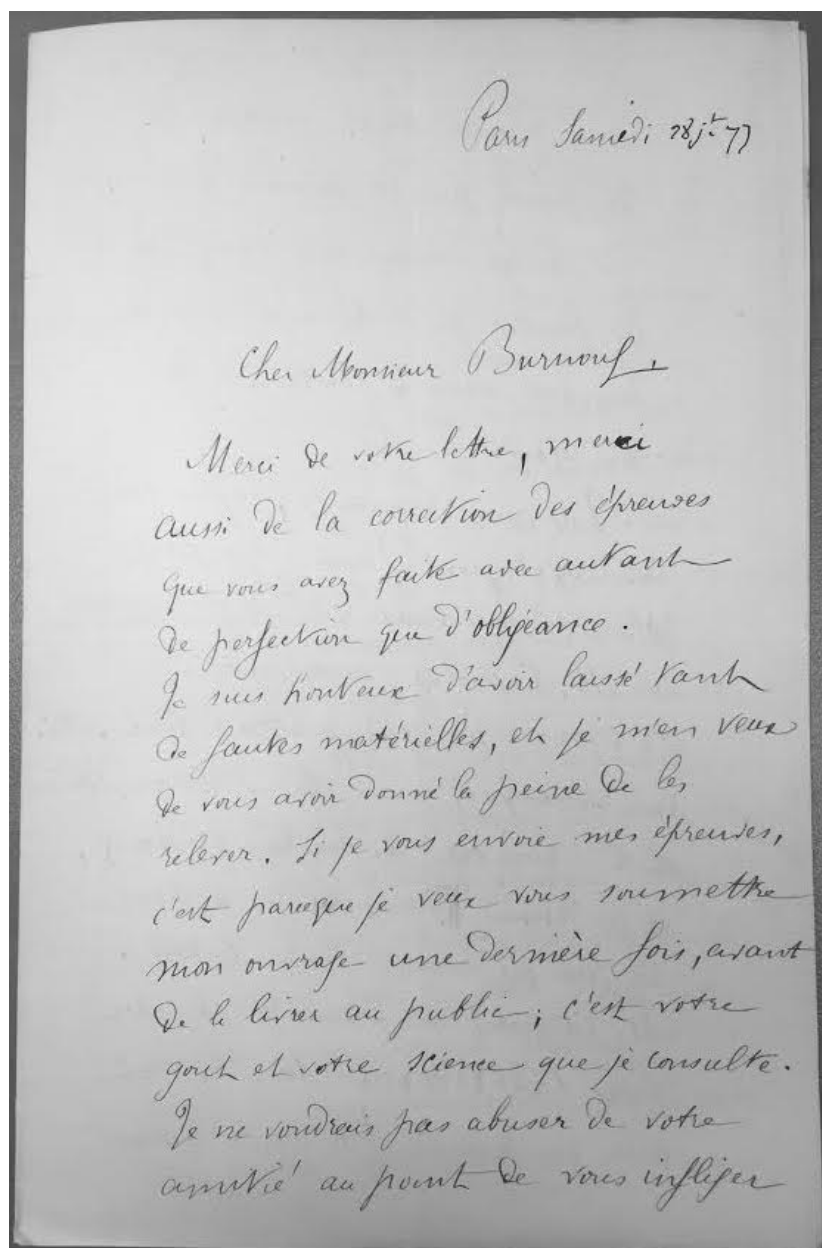 Paris Samedi 28 jt 77
Cher Monsieur Burnouf,
Merci de votre lettre, merci
aussi de la correction des épreuves
que vous avez faite avec autant
de perfection que d'obligeance.
Je suis honteux d'avoir laissé tant
de fautes matérielles, et je m'en veux
de vous avoir donné la peine de les
relever. Si je vous envoie mes épreuves,
c'est parceque je veux vous soumettre
mon ouvrage une dernière fois, avant
de le livrer au public; c'est votre
gout et votre science que je consulte.
Je ne voudrais pas abuser de votre
amitié au point de vous infliger